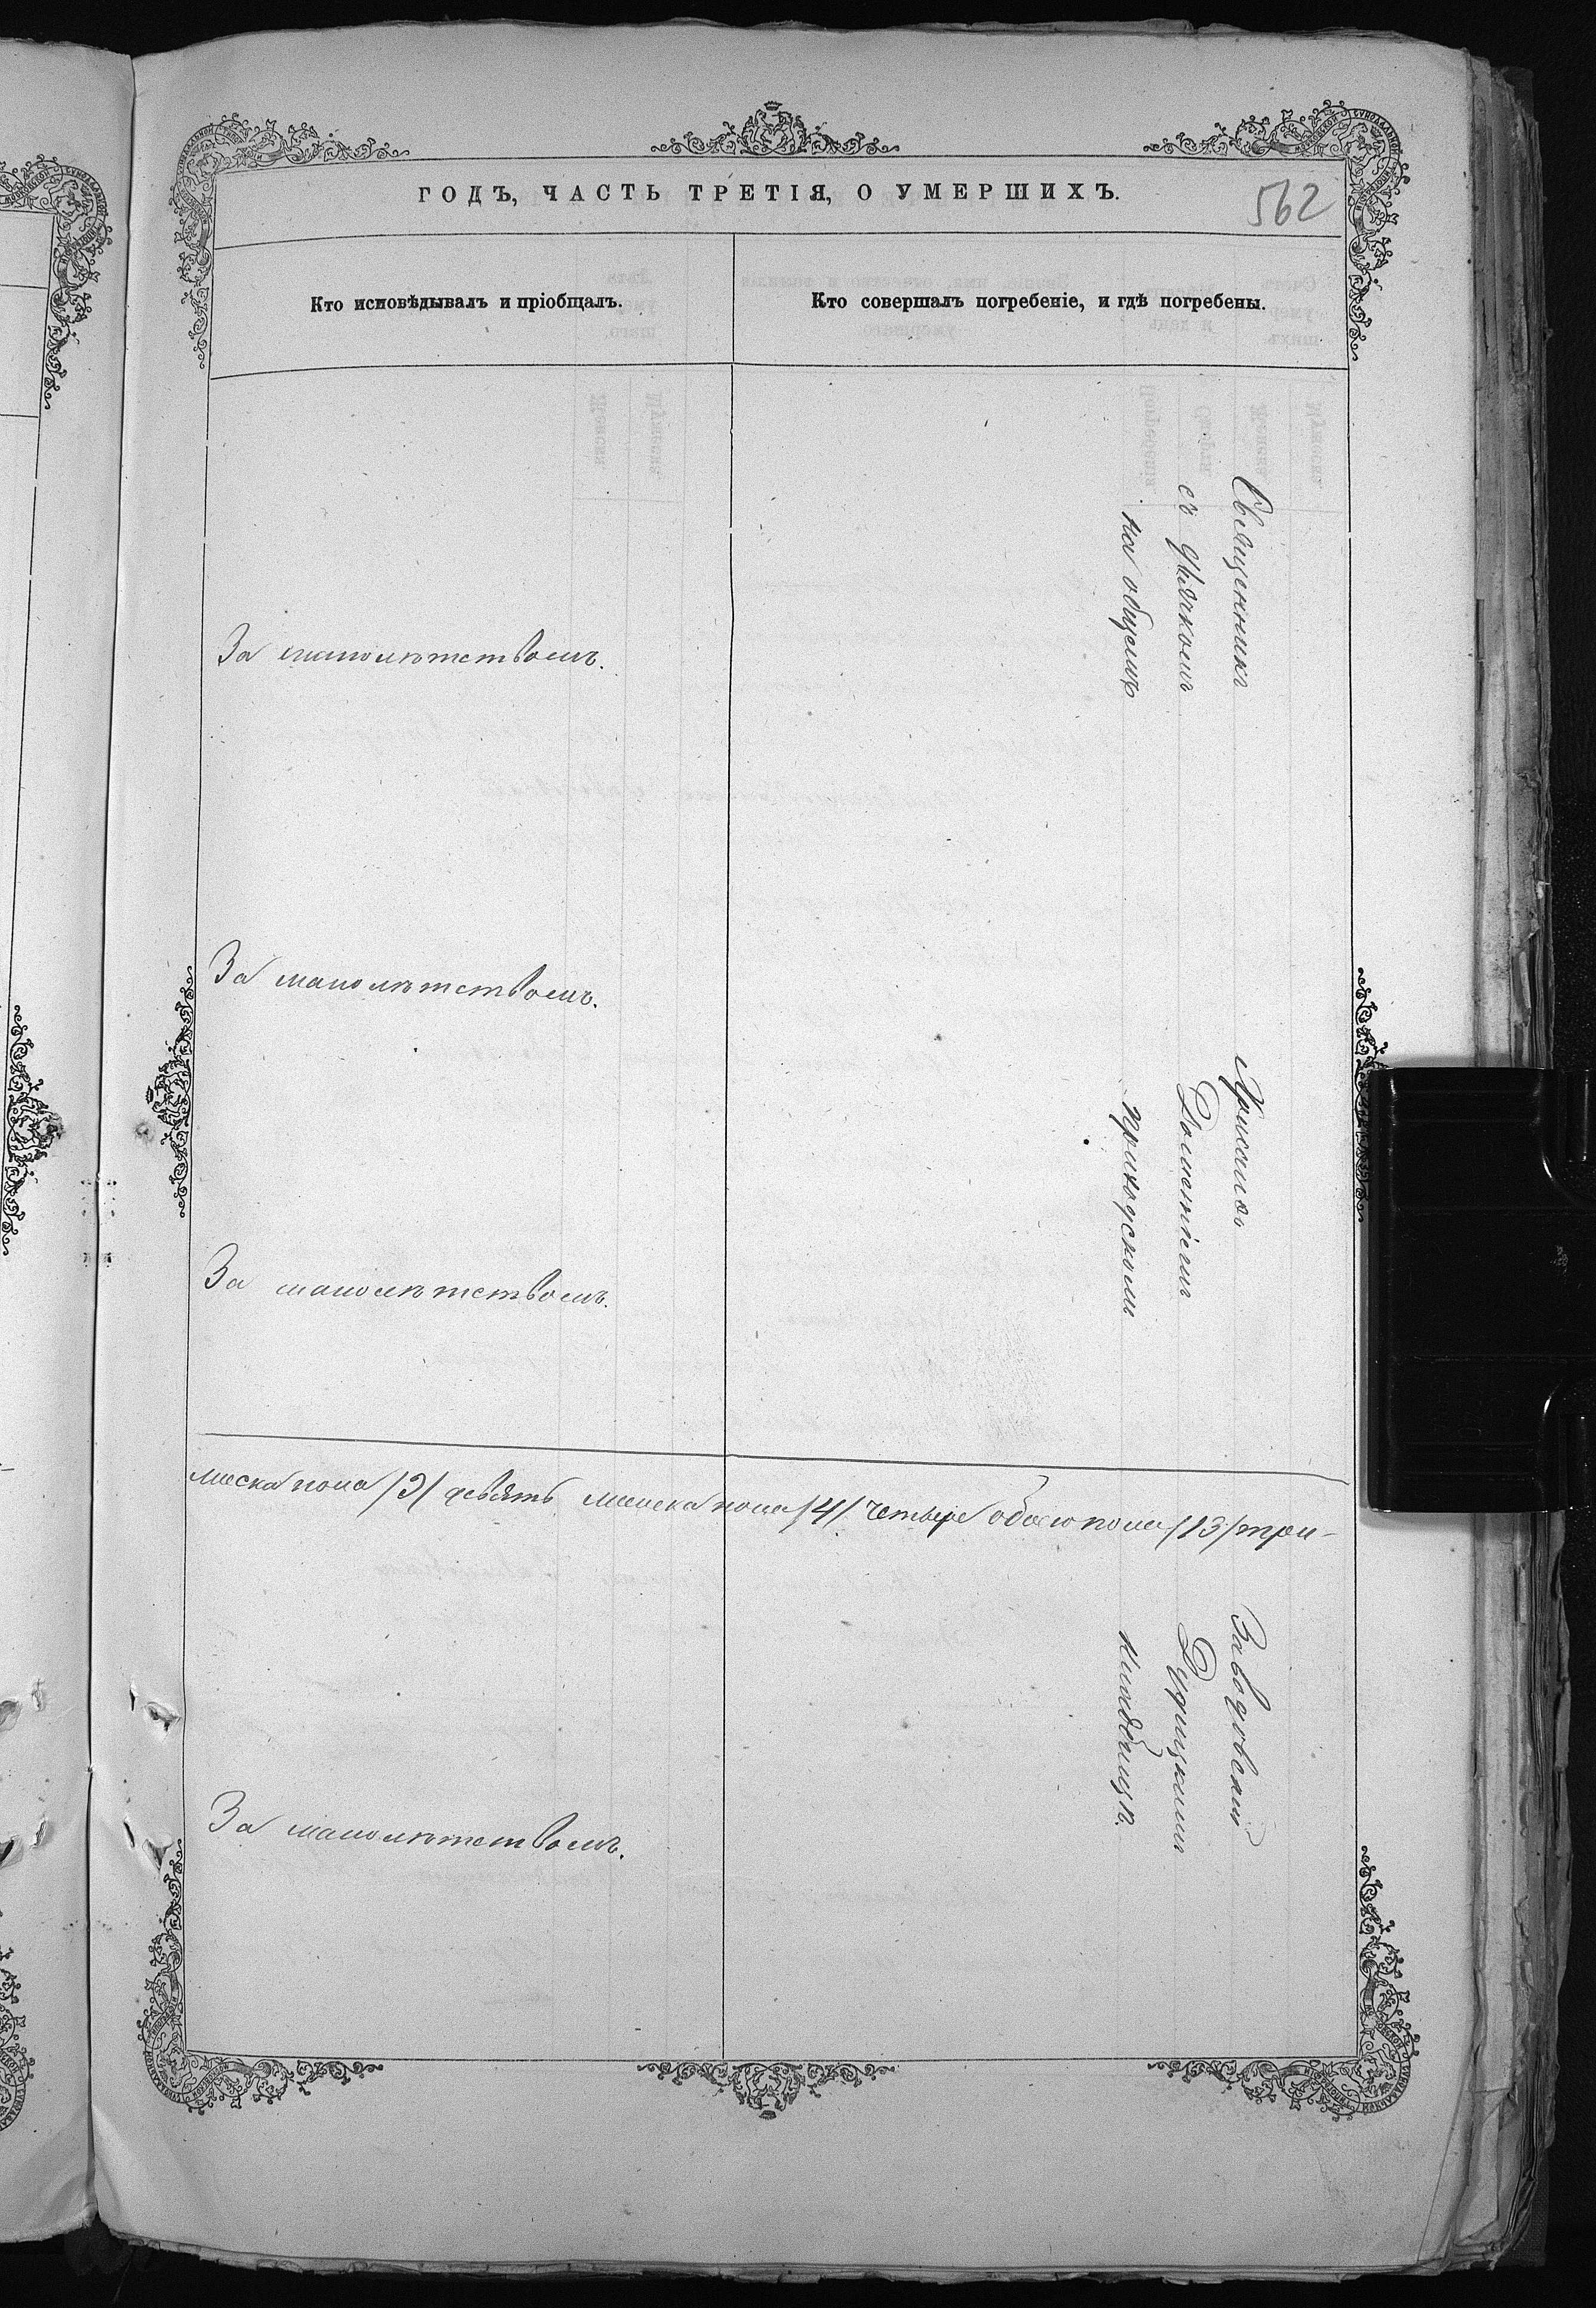 ГОДЪ, ЧАСТЬ ТРЕТІЯ, О УМЕРШИХЪ.
562
Кто исповѣдывалъ и пріобщалъ.
Кто совершалъ погребеніе, и гдѣ погребены.
За малолѣтствомъ.
За малолѣтствомъ.
За малолѣтствомъ.
мужска пола /9/ девять женска пола /4/ четыре обоего пола /13/ три-
За малолѣтствомъ.
Священникъ Хрисанѳъ Заводовскій
съ дьячкомъ Дометіемъ Дудицкимъ
на общемъ приходскомъ кладбищѣ.